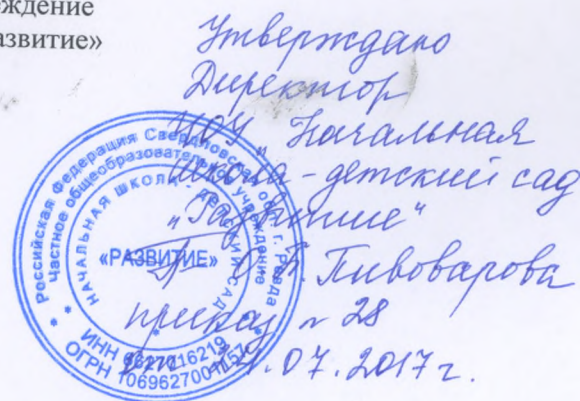 ждение
азвитие»
Утверждаю
Директор
ЧОУ „Начальная
школа - детский сад
„Развитие"
О.А. Пивоварова
приказ № 28
от 24.07.2017 г.
Российская Федерация Свердловская обл. г. Ревда
Частное общеобразовательное учреждение
НАЧАЛЬНАЯ ШКОЛА - ДЕТСКИЙ САД
«РАЗВИТИЕ»
ИНН 6627016219
ОГРН